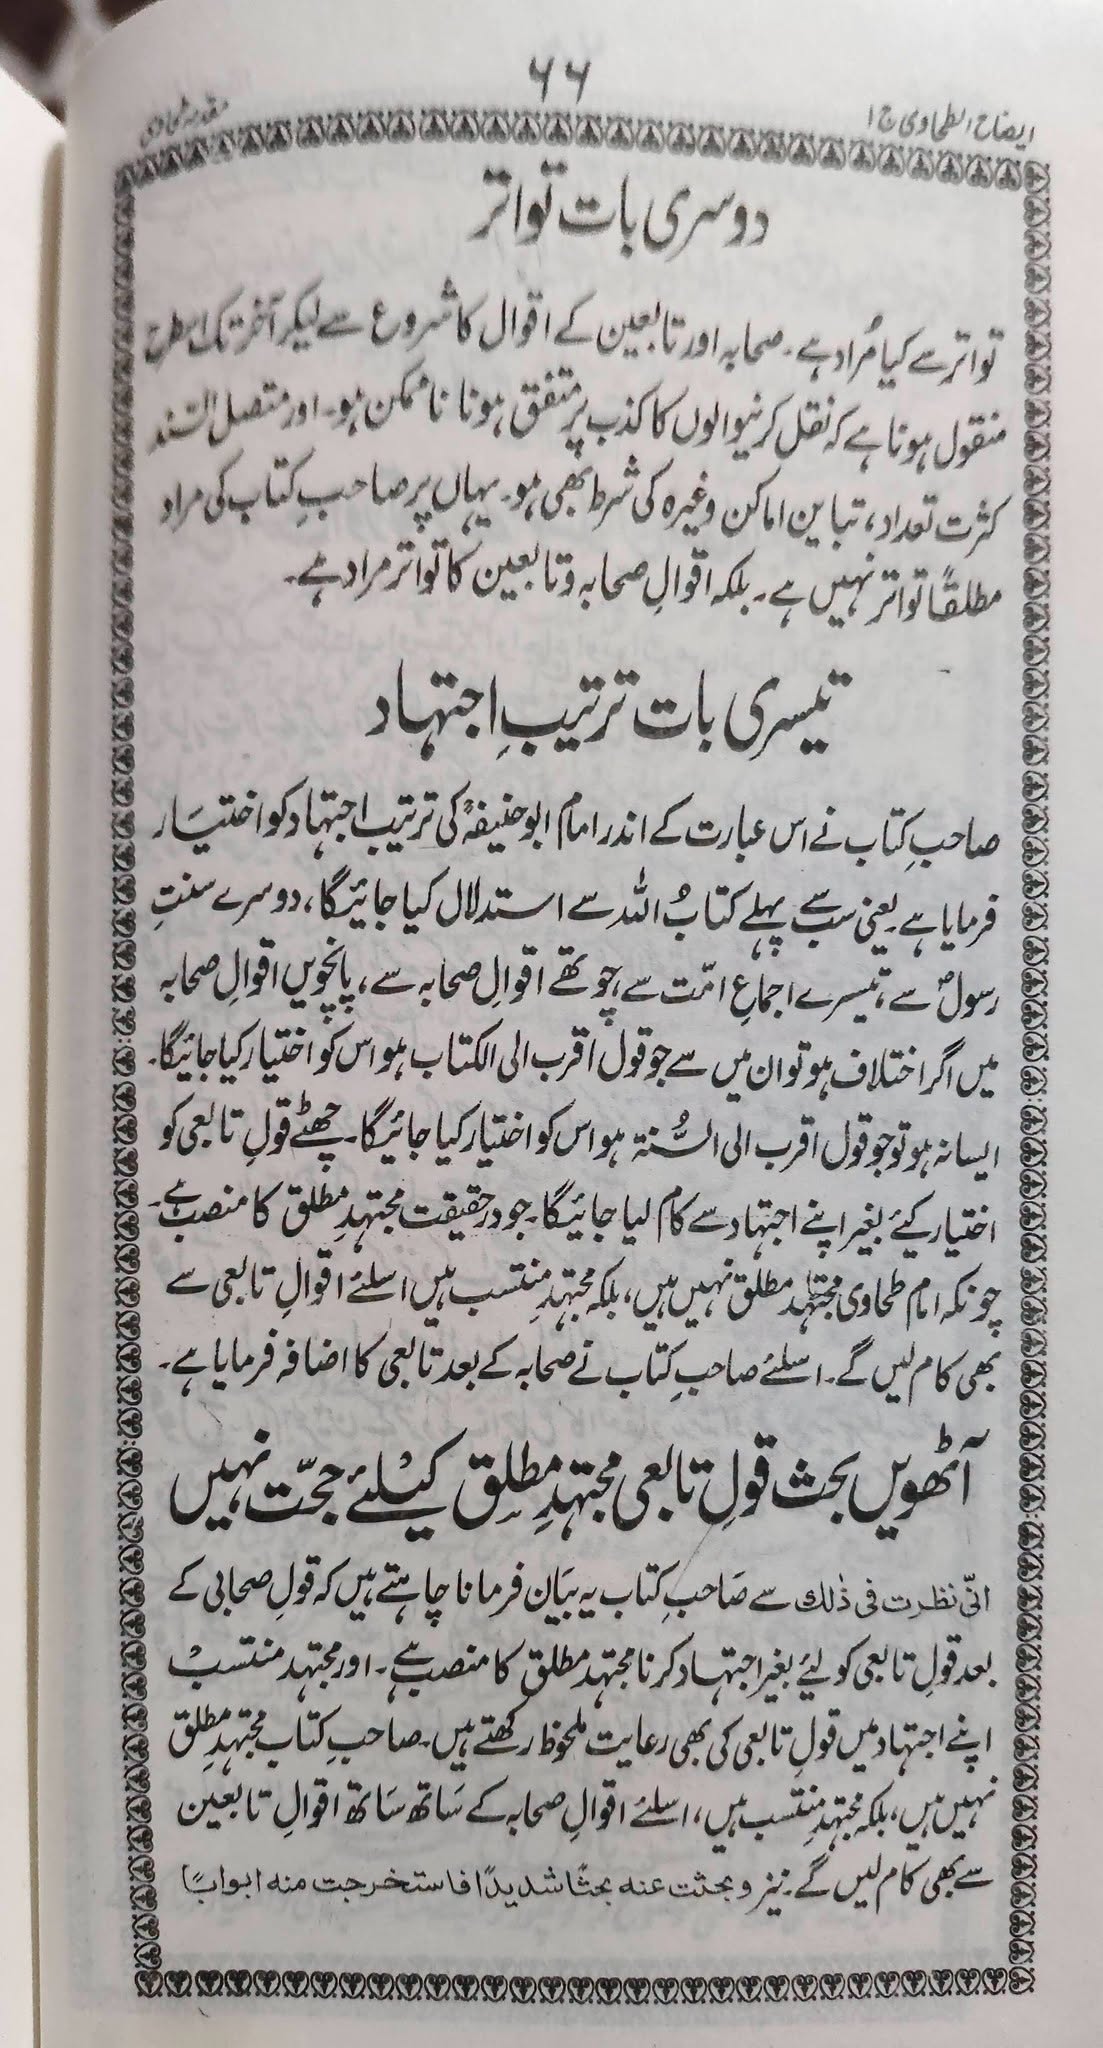 ۶۶
ایضاح الطحاوی ج ۱
مقدمہ طحاوی
دوسری بات تواتر
تواتر سے کیا مُراد ہے۔ صحابہ اور تابعین کے اقوال کا شروع سے لیکر آخر تک اسطرح
منقول ہونا ہے کہ نقل کرنیوالوں کا کذب پر متفق ہونا ناممکن ہو۔ اور متصل السّند
کثرت تعداد، تباین اماکن وغیرہ کی شرط بھی ہو۔ یہاں پر صاحبِ کتاب کی مراد
مطلقًا تواتر نہیں ہے۔ بلکہ اقوالِ صحابہ وتابعین کا تواتر مراد ہے۔
تیسری بات ترتیبِ اجتہاد
صاحبِ کتاب نے اس عبارت کے اندر امام ابوحنیفہؒ کی ترتیب اجتہاد کو اختیَار
فرمایا ہے۔ یعنی سب سے پہلے کتابُ اللہ سے استدلال کیا جائیگا، دوسرے سنتِ
رسولؐ سے، تیسرے اجماعِ امّت سے، چوتھے اقوالِ صحابہ سے، پانچویں اقوالِ صحابہ
میں اگر اختلاف ہو تو ان میں سے جو قول اقرب الی الکتاب ہو اس کو اختیار کیا جائیگا۔
ایسا نہ ہو تو جو قول اقرب الی السُّنۃ ہو اس کو اختیار کیا جائیگا۔ چھٹے قولِ تابعی کو
اختیار کیئے بغیر اپنے اجتہاد سے کام لیا جائیگا۔ جو در حقیقت مجتہدِ مطلق کا منصب ہے۔
چونکہ امام طحاوی مجتہد مطلق نہیں ہیں، بلکہ مجتہدِ منتسب ہیں اسلئے اقوالِ تابعی سے
بھی کام لیں گے۔ اسلئے صاحبِ کتاب نے صحابہ کے بعد تابعی کا اضافہ فرمایا ہے۔
آٹھویں بحث قولِ تابعی مجتہدِ مطلق کیلئے حجّت نہیں
انّی نظرت فی ذٰلك سے صَاحبِ کتاب یہ بیَان فرمانا چاہتے ہیں کہ قولِ صحابی کے
بعد قولِ تابعی کو لئے بغیر اجتہاد کرنا مجتہد مطلق کا منصب ہے۔ اور مجتہد منتسب
اپنے اجتہاد میں قولِ تابعی کی بھی رعایت ملحوظ رکھتے ہیں۔ صاحبِ کتاب مجتہدِ مطلق
نہیں ہیں، بلکہ مجتہدِ منتسب ہیں، اسلئے اقوالِ صحابہ کے سَاتھ سَاتھ اقوالِ تابعین
سے بھی کام لیں گے۔ نیز وبحثت عنه بحثًا شدیدًا فاستخرجت منه ابوابًا